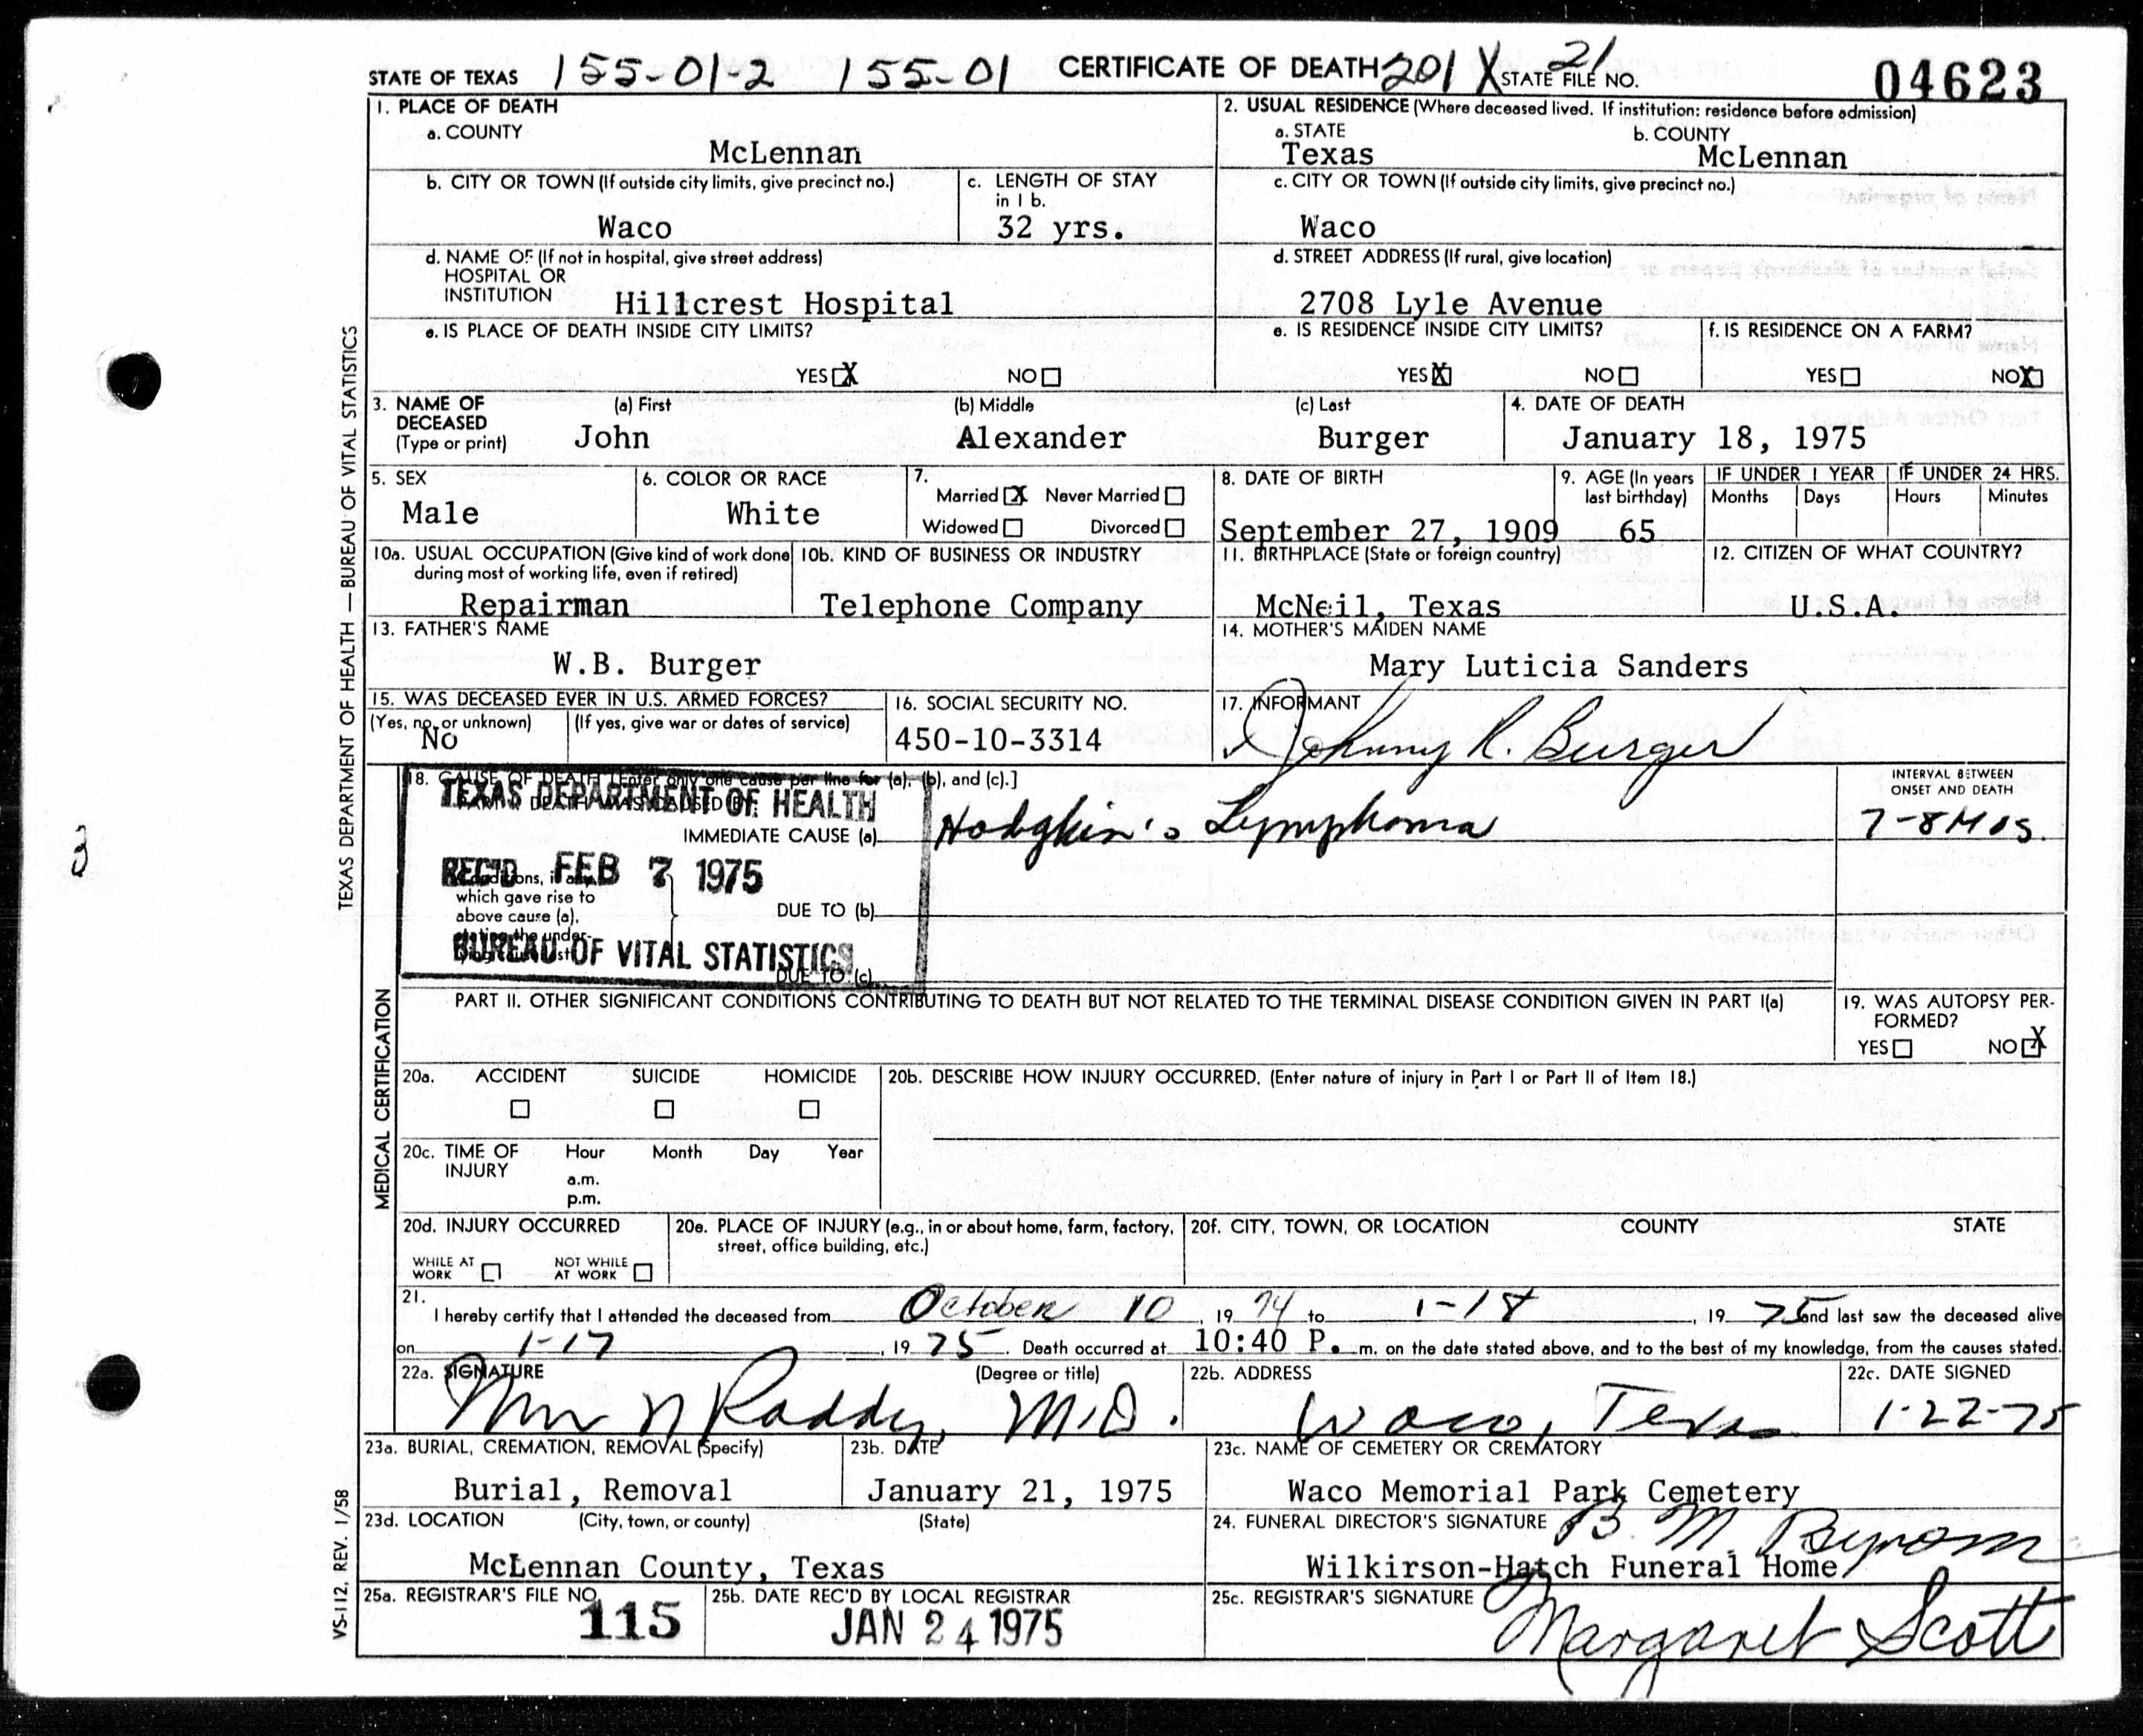 STATE OF TEXAS 155-01-2 155-01 CERTIFICATE OF DEATH 201 X 21 STATE FILE NO. 04623
1. PLACE OF DEATH
a. COUNTY
McLennan
2. USUAL RESIDENCE (Where deceased lived. If institution: residence before admission)
a. STATE
Texas
b. COUNTY
McLennan
b. CITY OR TOWN (If outside city limits, give precinct no.)
Waco
c. LENGTH OF STAY
in 1 b.
32 yrs.
c. CITY OR TOWN (If outside city limits, give precinct no.)
Waco
d. NAME OF (If not in hospital, give street address)
HOSPITAL OR
INSTITUTION Hillcrest Hospital
d. STREET ADDRESS (If rural, give location)
2708 Lyle Avenue
e. IS PLACE OF DEATH INSIDE CITY LIMITS?
YES X NO
e. IS RESIDENCE INSIDE CITY LIMITS?
YES X NO
f. IS RESIDENCE ON A FARM?
YES NO X
3. NAME OF
DECEASED
(Type or print)
(a) First
John
(b) Middle
Alexander
(c) Last
Burger
4. DATE OF DEATH
January 18, 1975
5. SEX
Male
6. COLOR OR RACE
White
7.
Married X Never Married
Widowed Divorced
8. DATE OF BIRTH
September 27, 1909
9. AGE (In years
last birthday)
65
IF UNDER 1 YEAR
Months Days
IF UNDER 24 HRS.
Hours Minutes
10a. USUAL OCCUPATION (Give kind of work done
during most of working life, even if retired)
Repairman
10b. KIND OF BUSINESS OR INDUSTRY
Telephone Company
11. BIRTHPLACE (State or foreign country)
McNeil, Texas
12. CITIZEN OF WHAT COUNTRY?
U.S.A.
13. FATHER'S NAME
W.B. Burger
14. MOTHER'S MAIDEN NAME
Mary Luticia Sanders
15. WAS DECEASED EVER IN U.S. ARMED FORCES?
(Yes, no, or unknown) (If yes, give war or dates of service)
No
16. SOCIAL SECURITY NO.
450-10-3314
17. INFORMANT
Johnny R. Burger
18. CAUSE OF DEATH [Enter only one cause per line for (a), (b), and (c).]
TEXAS DEPARTMENT OF HEALTH
IMMEDIATE CAUSE (a) Hodgkin's Lymphoma
INTERVAL BETWEEN
ONSET AND DEATH
7-8 Mos.
REC'D FEB 7 1975
Conditions, if any,
which gave rise to
above cause (a),
stating the under-
DUE TO (b)
BUREAU OF VITAL STATISTICS
DUE TO (c)
PART II. OTHER SIGNIFICANT CONDITIONS CONTRIBUTING TO DEATH BUT NOT RELATED TO THE TERMINAL DISEASE CONDITION GIVEN IN PART I(a)
19. WAS AUTOPSY PER-
FORMED?
YES NO X
20a. ACCIDENT SUICIDE HOMICIDE
20b. DESCRIBE HOW INJURY OCCURRED. (Enter nature of injury in Part I or Part II of Item 18.)
20c. TIME OF
INJURY
Hour Month Day Year
a.m.
p.m.
20d. INJURY OCCURRED
WHILE AT
WORK
NOT WHILE
AT WORK
20e. PLACE OF INJURY (e.g., in or about home, farm, factory,
street, office building, etc.)
20f. CITY, TOWN, OR LOCATION COUNTY STATE
21.
I hereby certify that I attended the deceased from October 10, 19 74 to 1-18, 19 75 and last saw the deceased alive
on 1-17, 19 75. Death occurred at 10:40 P. m. on the date stated above, and to the best of my knowledge, from the causes stated.
22a. SIGNATURE (Degree or title)
Wm N Raddy, M.D.
22b. ADDRESS
Waco, Texas
22c. DATE SIGNED
1-22-75
23a. BURIAL, CREMATION, REMOVAL (Specify)
Burial, Removal
23b. DATE
January 21, 1975
23c. NAME OF CEMETERY OR CREMATORY
Waco Memorial Park Cemetery
23d. LOCATION (City, town, or county) (State)
McLennan County, Texas
24. FUNERAL DIRECTOR'S SIGNATURE B. M. Byrom
Wilkirson-Hatch Funeral Home
25a. REGISTRAR'S FILE NO.
115
25b. DATE REC'D BY LOCAL REGISTRAR
JAN 24 1975
25c. REGISTRAR'S SIGNATURE
Margaret Scott
TEXAS DEPARTMENT OF HEALTH — BUREAU OF VITAL STATISTICS
MEDICAL CERTIFICATION
VS-112, REV. 1/58
3